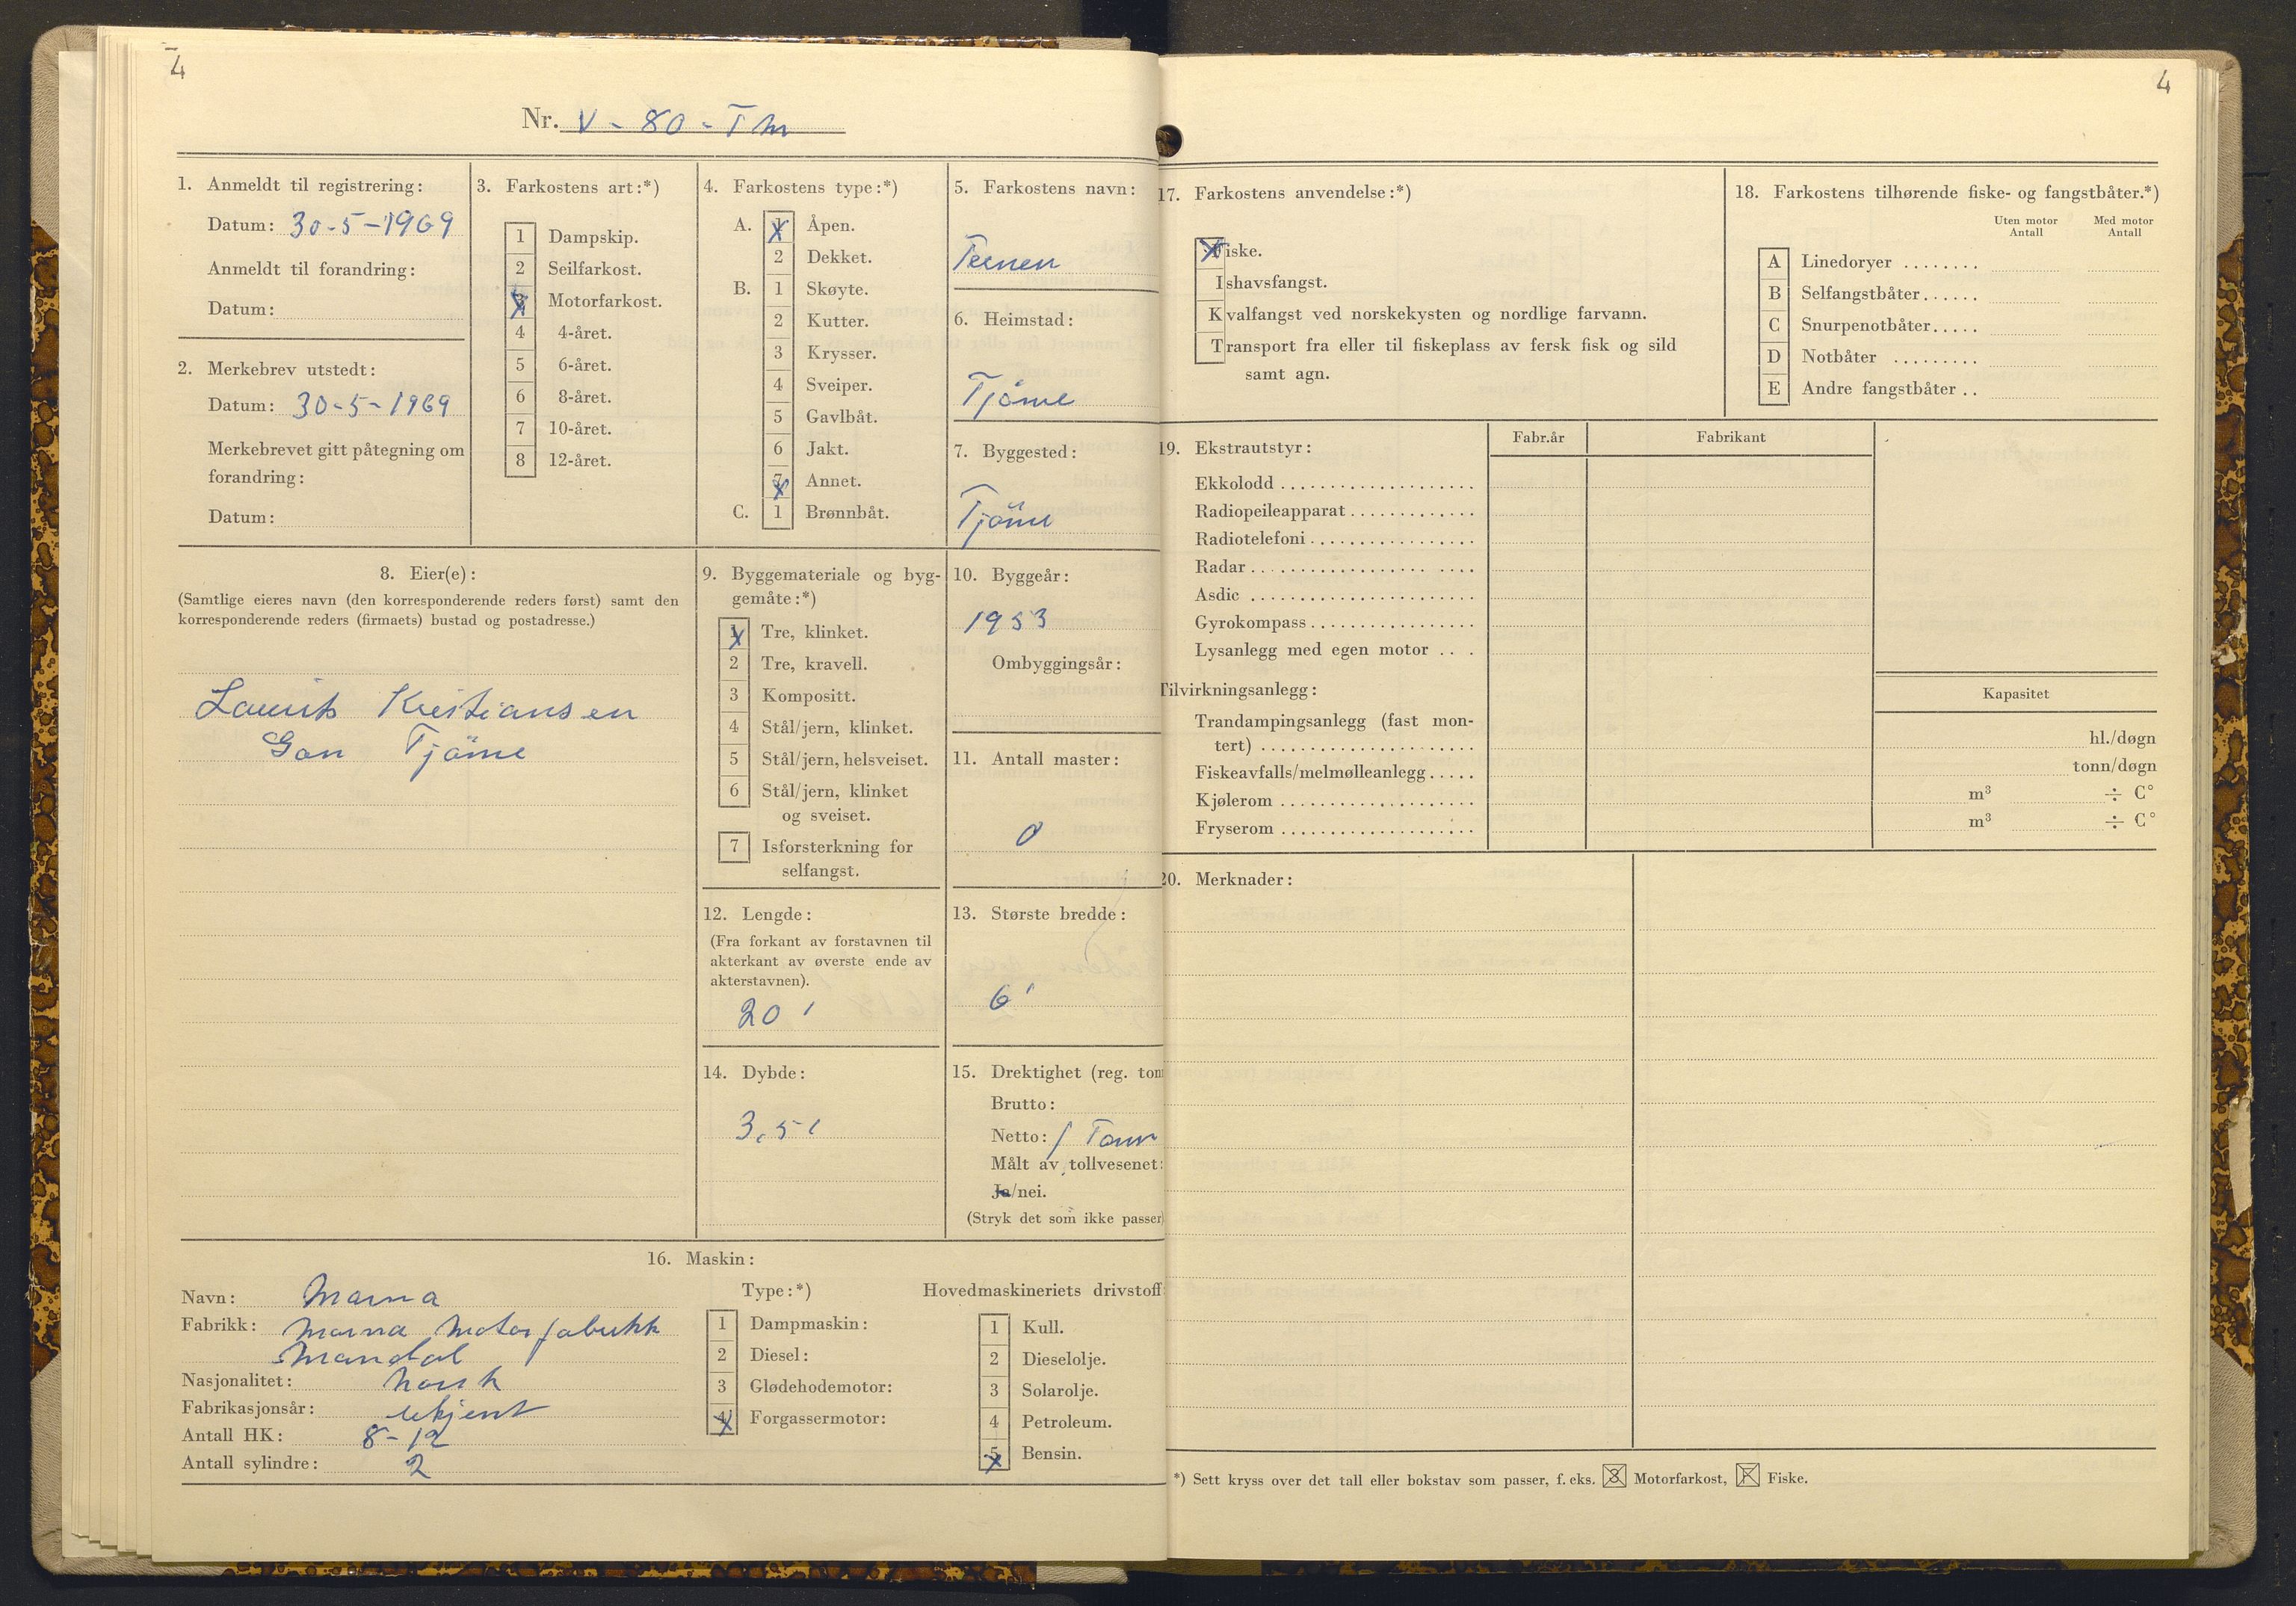 4
Nr. V-80-Tm
1. Anmeldt til registrering:
Datum: 30-5-1969
Anmeldt til forandring:
Datum:
2. Merkebrev utstedt:
Datum: 30-5-1969
Merkebrevet gitt påtegning om
forandring:
Datum:
3. Farkostens art:*)
1 Dampskip.
2 Seilfarkost.
3 Motorfarkost.
4 4-året.
5 6-året.
6 8-året.
7 10-året.
8 12-året.
4. Farkostens type:*)
A. 1 Åpen.
2 Dekket.
B. 1 Skøyte.
2 Kutter.
3 Krysser.
4 Sveiper.
5 Gavlbåt.
6 Jakt.
7 Annet.
C. 1 Brønnbåt.
5. Farkostens navn:
Ternen
6. Heimstad:
Tjöme
7. Byggested:
Tjöme
8. Eier(e):
(Samtlige eieres navn (den korresponderende reders først) samt den
korresponderende reders (firmaets) bustad og postadresse.)
Laurits Kristiansen
Gon Tjöme
9. Byggemateriale og byg-
gemåte:*)
1 Tre, klinket.
2 Tre, kravell.
3 Kompositt.
4 Stål/jern, klinket.
5 Stål/jern, helsveiset.
6 Stål/jern, klinket
og sveiset.
7 Isforsterkning for
selfangst.
10. Byggeår:
1953
Ombyggingsår:
11. Antall master:
0
12. Lengde:
(Fra forkant av forstavnen til
akterkant av øverste ende av
akterstavnen).
20'
13. Største bredde:
6'
14. Dybde:
3,5'
15. Drektighet (reg. tonn
Brutto:
Netto: 1 Tonn
Målt av tollvesenet:
Ja/nei.
(Stryk det som ikke passer)
16. Maskin:
Navn: Marna
Fabrikk: Marna Motorfabrikk
Mandal
Nasjonalitet: Norsk
Fabrikasjonsår: Ukjent
Antall HK: 8-12
Antall sylindre: 2
Type:*)
1 Dampmaskin:
2 Diesel:
3 Glødehodemotor:
4 Forgassermotor:
Hovedmaskineriets drivstoff:
1 Kull.
2 Dieselolje.
3 Solarolje.
4 Petroleum.
5 Bensin.
4
17. Farkostens anvendelse:*)
Fiske.
Ishavsfangst.
Kvalfangst ved norskekysten og nordlige farvann.
Transport fra eller til fiskeplass av fersk fisk og sild
samt agn.
18. Farkostens tilhørende fiske- og fangstbåter.*)
Uten motor Med motor
Antall Antall
A Linedoryer ........
B Selfangstbåter......
C Snurpenotbåter.....
D Notbåter .........
E Andre fangstbåter ..
19. Ekstrautstyr:
Fabr.år Fabrikant
Ekkolodd
Radiopeileapparat
Radiotelefoni
Radar
Asdic
Gyrokompass
Lysanlegg med egen motor
Tilvirkningsanlegg:
Kapasitet
Trandampingsanlegg (fast mon-
tert) hl./døgn
Fiskeavfalls/melmølleanlegg tonn/døgn
Kjølerom m³ ÷ C°
Fryserom m³ ÷ C°
20. Merknader:
*) Sett kryss over det tall eller bokstav som passer, f. eks. 3 Motorfarkost, F Fiske.